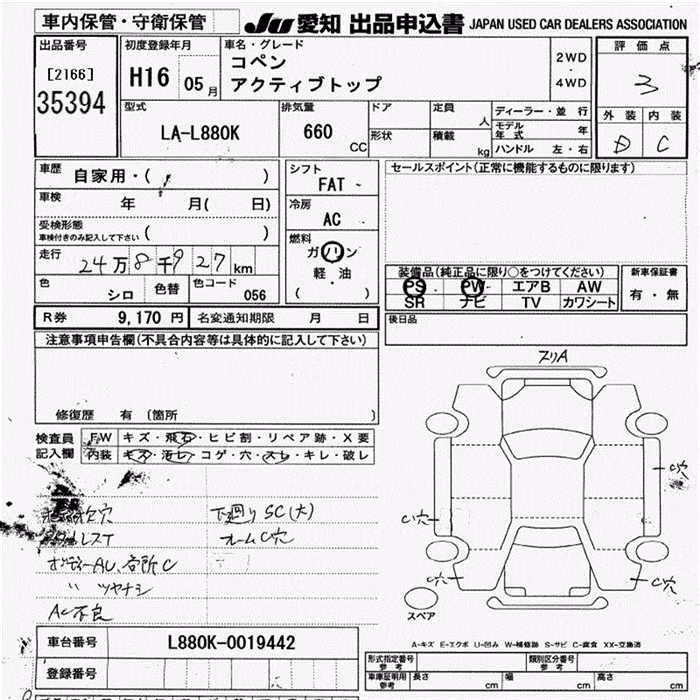 車内保管・守衛保管
JU 愛知 出品申込書 JAPAN USED CAR DEALERS ASSOCIATION
出品番号
[2166]
35394
初度登録年月
H16 05月
車名・グレード
コペン
アクティブトップ
2WD
・
4WD
評価点
3
外装 内装
D C
型式
LA-L880K
排気量
660
CC
ドア
形状
定員
人
積載
kg
ディーラー・並行
モデル年式 年
ハンドル 左・右
車歴
自家用・( )
車検
年 月( 日)
受検形態
車検付きのみ記入して下さい ( )
走行
24万8千927km
色
シロ
色替
色コード
056
シフト
FAT
冷房
AC
燃料
ガソリン
軽・油
( )
セールスポイント(正常に機能するものに限ります)
装備品(純正品に限り○をつけてください)
PS PW エアB AW
SR ナビ TV カワシート
新車保証書
有・無
R券 9,170円 名変通知期限 月 日
後日品
注意事項申告欄(不具合内容等は具体的に記入して下さい)
修復歴 有 (箇所 )
検査員
記入欄
FW キズ・飛石・ヒビ割・リペア跡・X要
内装 キズ・汚レ・コゲ・穴・スレ・キレ・破レ
下廻りSC(大)
フレームC穴
ボディーAU、各所C
〃 ツヤナシ
AC不良
ヌリA
C穴
C穴
C穴
C穴
スペア
A-キズ E-エクボ U-凹み W-補修跡 S-サビ C-腐食 XX-交換済
車台番号
L880K-0019442
登録番号
形式指定番号
参考
類別区分番号
参考
車庫証明用
参考
長さ cm 幅 cm 高さ cm